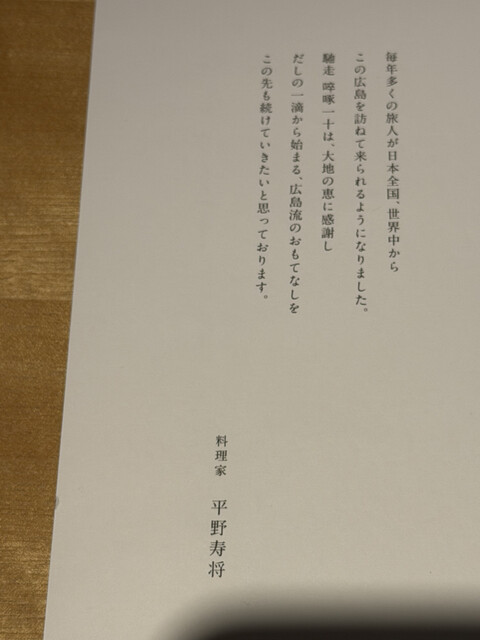 毎年多くの旅人が日本全国、世界中から
この広島を訪ねて来られるようになりました。
馳走 啐啄一十は、大地の恵に感謝し
だしの一滴から始まる、広島流のおもてなしを
この先も続けていきたいと思っております。
料理家 平野寿将